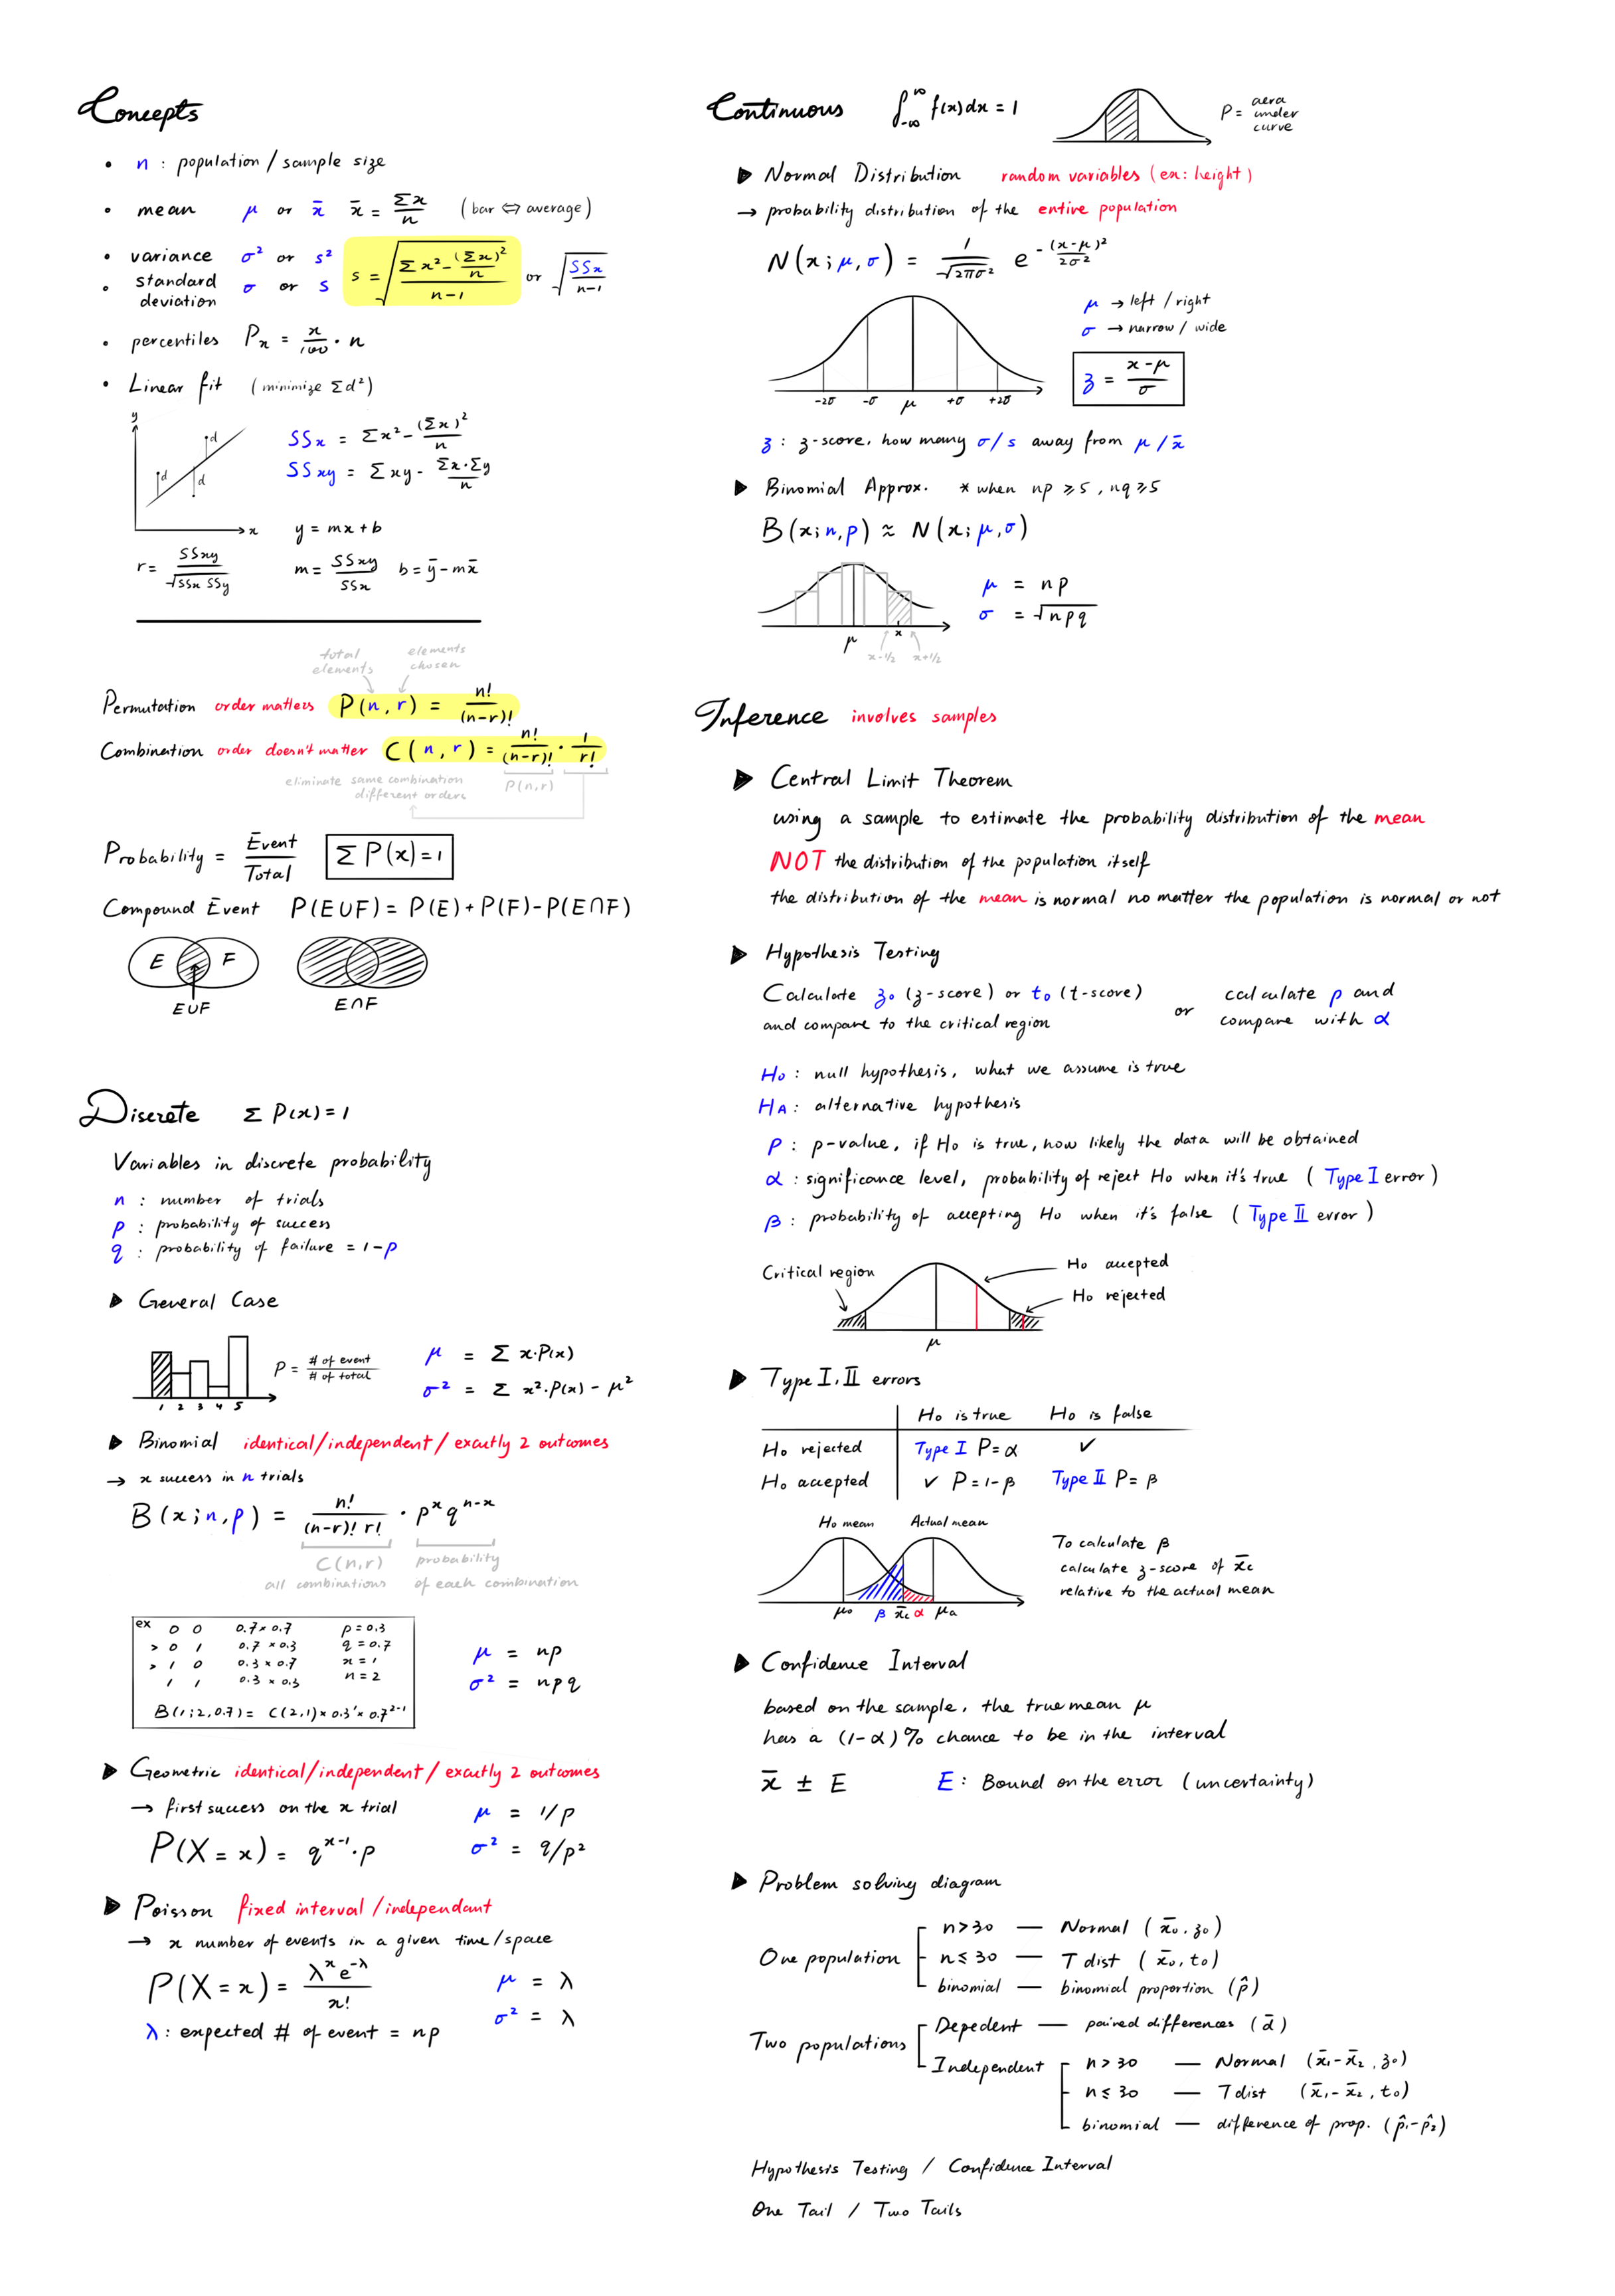 Concepts
• n : population / sample size
• mean μ or x̄ x̄ = Σx/n (bar ⇔ average)
• variance σ² or s²
• standard deviation σ or s s = √((Σx² - (Σx)²/n)/(n-1)) or √(SSx/(n-1))
• percentiles Px = x/100 · n
• Linear fit (minimize Σd²)
y
d
d
d
x
SSx = Σx² - (Σx)²/n
SSxy = Σxy - Σx·Σy/n
y = mx + b
r = SSxy/√(SSx SSy) m = SSxy/SSx b = ȳ - mx̄
total elements
elements chosen
Permutation order matters P(n, r) = n!/(n-r)!
Combination order doesn't matter C(n, r) = n!/(n-r)! · 1/r!
eliminate same combination
different orders
P(n,r)
Probability = Event/Total ΣP(x) = 1
Compound Event P(E∪F) = P(E) + P(F) - P(E∩F)
E F
E∪F E∩F
Discrete Σ P(x) = 1
Variables in discrete probability
n : number of trials
p : probability of success
q : probability of failure = 1-p
▶ General Case
1 2 3 4 5
P = # of event/# of total
μ = Σ x·P(x)
σ² = Σ x²·P(x) - μ²
▶ Binomial identical/independent/exactly 2 outcomes
→ x success in n trials
B(x; n, p) = n!/((n-r)! r!) · pˣqⁿ⁻ˣ
C(n,r) probability
all combinations of each combination
ex 0 0 0.7×0.7 p=0.3
> 0 1 0.7×0.3 q=0.7
> 1 0 0.3×0.7 x=1
1 1 0.3×0.3 n=2
B(1;2,0.7) = C(2,1)×0.3¹×0.7²⁻¹
μ = np
σ² = npq
▶ Geometric identical/independent/exactly 2 outcomes
→ first success on the x trial
P(X = x) = qˣ⁻¹·p
μ = 1/p
σ² = q/p²
▶ Poisson fixed interval/independant
→ x number of events in a given time/space
P(X = x) = λˣe^-λ/x!
μ = λ
σ² = λ
λ: expected # of event = np
Continuous ∫-∞^∞ f(x)dx = 1
P = aera under curve
▶ Normal Distribution random variables (ex: height)
→ probability distribution of the entire population
N(x; μ, σ) = 1/√(2πσ²) e^-(x-μ)²/2σ²
-2σ -σ μ +σ +2σ
μ → left / right
σ → narrow / wide
z = (x-μ)/σ
z : z-score, how many σ/s away from μ/x̄
▶ Binomial Approx. * when np ≥ 5, nq ≥ 5
B(x; n, p) ≈ N(x; μ, σ)
μ
x
x-1/2 x+1/2
μ = np
σ = √npq
Inference involves samples
▶ Central Limit Theorem
using a sample to estimate the probability distribution of the mean
NOT the distribution of the population itself
the distribution of the mean is normal no matter the population is normal or not
▶ Hypothesis Testing
Calculate z₀ (z-score) or t₀ (t-score)
and compare to the critical region
or
calculate p and
compare with α
H₀ : null hypothesis, what we assume is true
HA : alternative hypothesis
P : p-value, if H₀ is true, how likely the data will be obtained
α : significance level, probability of reject H₀ when it's true (Type I error)
β : probability of accepting H₀ when it's false (Type II error)
Critical region
H₀ accepted
H₀ rejected
μ
▶ Type I, II errors
H₀ is true H₀ is false
H₀ rejected Type I P=α ✓
H₀ accepted ✓ P=1-β Type II P=β
H₀ mean Actual mean
μ₀ β x̄c α μa
To calculate β
calculate z-score of x̄c
relative to the actual mean
▶ Confidence Interval
based on the sample, the true mean μ
has a (1-α)% chance to be in the interval
x̄ ± E E: Bound on the error (uncertainty)
▶ Problem solving diagram
One population
n>30 — Normal (x̄₀, z₀)
n≤30 — T dist (x̄₀, t₀)
binomial — binomial proportion (p̂)
Two populations
Depedent — paired differences (d̄)
Independent
n>30 — Normal (x̄₁-x̄₂, z₀)
n≤30 — T dist (x̄₁-x̄₂, t₀)
binomial — difference of prop. (p̂₁-p̂₂)
Hypothesis Testing / Confidence Interval
One Tail / Two Tails